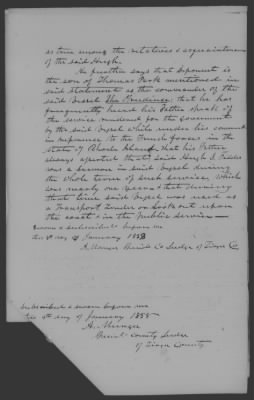 as true among the relatives & acquaintances
of the said Hugh.
He further says that deponent is
the son of Thomas Park mentioned in
said statement as the commander of the
said vessel The Prudence; that he has
frequently heard his Father speak of
the service rendered for the government
by the said Vessel while under his command
in reference to the French forces in the
State of Rhode Island, that his Father
always asserted that said Hugh
was a seaman in said Vessel during
the whole term of such service, which
was nearly one year & that during
that time said Vessel was used as
a transport tender or look out upon
the coast & in the public service
Sworn & subscribed before me
the 4 day of January
A. Munger County Judge of Tioga Co
Subscribed & sworn before me
the 4th day of January
A. Munger
County Judge
of Tioga County